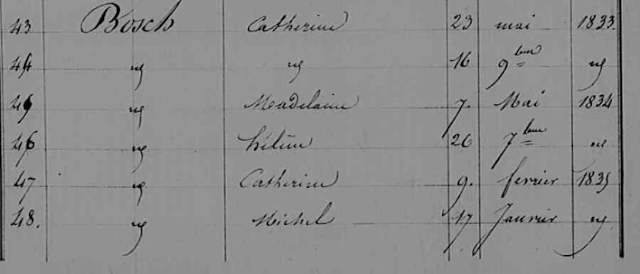 43 Bosch Catherine 23 mai 1833
44 " " 16 9bre "
45 " Madelaine 7. Mai 1834
46 " hélène 26 7bre "
47 " Catherine 9. fevrier 1835
48. " Michel 17 Janvier "